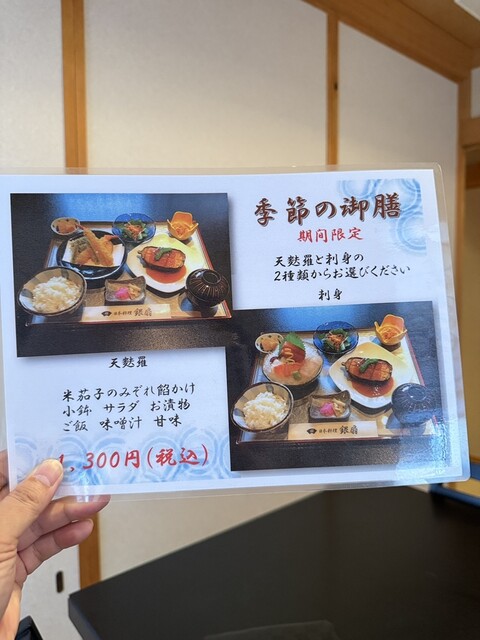 季節の御膳
期間限定
天麩羅と刺身の
2種類からお選びください
刺身
天麩羅
米茄子のみぞれ餡かけ
小鉢 サラダ お漬物
ご飯 味噌汁 甘味
1,300円(税込)
日本料理 銀扇
日本料理 銀扇